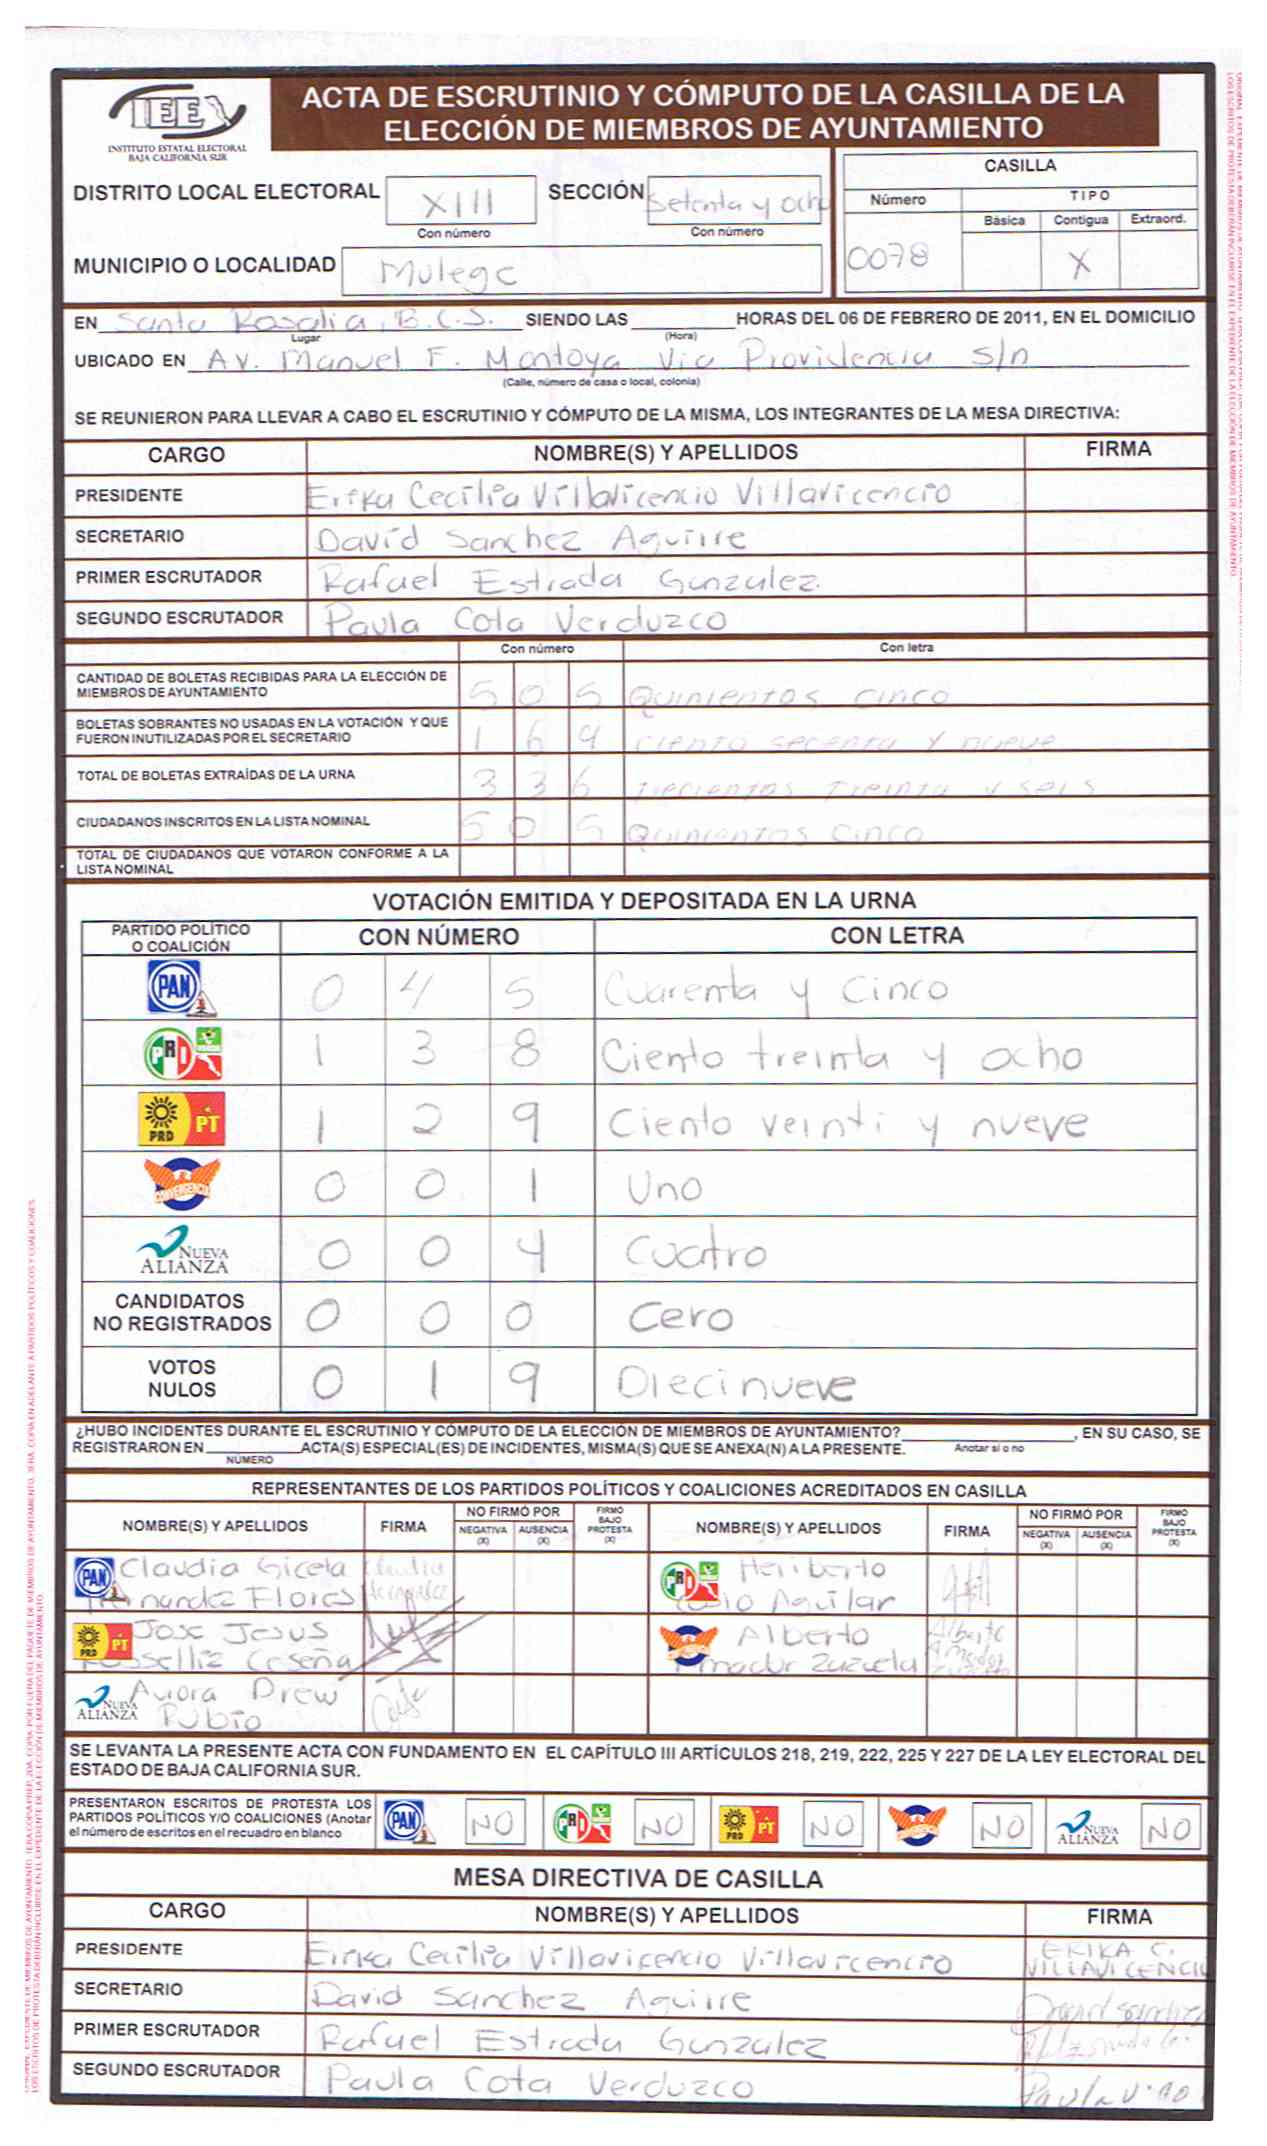 IEE
INSTITUTO ESTATAL ELECTORAL
BAJA CALIFORNIA SUR
ACTA DE ESCRUTINIO Y CÓMPUTO DE LA CASILLA DE LA
ELECCIÓN DE MIEMBROS DE AYUNTAMIENTO
DISTRITO LOCAL ELECTORAL XIII SECCIÓN Setenta y ocho
Con número Con número
MUNICIPIO O LOCALIDAD Mulege
CASILLA
Número TIPO
Básica Contigua Extraord.
0078 X
EN Santa Rosalia, B.C.S. SIENDO LAS HORAS DEL 06 DE FEBRERO DE 2011, EN EL DOMICILIO
Lugar (Hora)
UBICADO EN Av. Manuel F. Montoya Via Providencia s/n
(Calle, número de casa o local, colonia)
SE REUNIERON PARA LLEVAR A CABO EL ESCRUTINIO Y CÓMPUTO DE LA MISMA, LOS INTEGRANTES DE LA MESA DIRECTIVA:
CARGO NOMBRE(S) Y APELLIDOS FIRMA
PRESIDENTE Erika Cecilia Villavicencio Villavicencio
SECRETARIO David Sanchez Aguirre
PRIMER ESCRUTADOR Rafael Estrada Gonzalez.
SEGUNDO ESCRUTADOR Paula Cota Verduzco
Con número Con letra
CANTIDAD DE BOLETAS RECIBIDAS PARA LA ELECCIÓN DE
MIEMBROS DE AYUNTAMIENTO 5 0 5 Quinientos cinco
BOLETAS SOBRANTES NO USADAS EN LA VOTACIÓN Y QUE
FUERON INUTILIZADAS POR EL SECRETARIO 1 6 9 ciento secenta y nueve
TOTAL DE BOLETAS EXTRAÍDAS DE LA URNA 3 3 6 Trecientos treinta y seis
CIUDADANOS INSCRITOS EN LA LISTA NOMINAL 5 0 5 Quinientos cinco
TOTAL DE CIUDADANOS QUE VOTARON CONFORME A LA
LISTA NOMINAL
VOTACIÓN EMITIDA Y DEPOSITADA EN LA URNA
PARTIDO POLÍTICO
O COALICIÓN CON NÚMERO CON LETRA
PAN 0 4 5 Cuarenta y Cinco
PRI VERDE 1 3 8 Ciento treinta y ocho
PRD PT 1 2 9 Ciento veinti y nueve
CONVERGENCIA 0 0 1 Uno
NUEVA ALIANZA 0 0 4 Cuatro
CANDIDATOS
NO REGISTRADOS 0 0 0 Cero
VOTOS
NULOS 0 1 9 Diecinueve
¿HUBO INCIDENTES DURANTE EL ESCRUTINIO Y CÓMPUTO DE LA ELECCIÓN DE MIEMBROS DE AYUNTAMIENTO? , EN SU CASO, SE
REGISTRARON EN ACTA(S) ESPECIAL(ES) DE INCIDENTES, MISMA(S) QUE SE ANEXA(N) A LA PRESENTE. Anotar si o no
NÚMERO
REPRESENTANTES DE LOS PARTIDOS POLÍTICOS Y COALICIONES ACREDITADOS EN CASILLA
NOMBRE(S) Y APELLIDOS FIRMA NO FIRMÓ POR NEGATIVA (X) AUSENCIA (X) FIRMÓ BAJO PROTESTA (X) NOMBRE(S) Y APELLIDOS FIRMA NO FIRMÓ POR NEGATIVA (X) AUSENCIA (X) FIRMÓ BAJO PROTESTA (X)
PAN Claudia Gicela PRI Heriberto
Flores Aguilar
PRD PT Jose Jesus Alberto Alberto
Ceseña Amador
NUEVA ALIANZA Aurora Drew
Rubio
SE LEVANTA LA PRESENTE ACTA CON FUNDAMENTO EN EL CAPÍTULO III ARTÍCULOS 218, 219, 222, 225 Y 227 DE LA LEY ELECTORAL DEL
ESTADO DE BAJA CALIFORNIA SUR.
PRESENTARON ESCRITOS DE PROTESTA LOS
PARTIDOS POLÍTICOS Y/O COALICIONES (Anotar
el número de escritos en el recuadro en blanco
PAN NO PRI NO PRD PT NO NO NUEVA ALIANZA NO
MESA DIRECTIVA DE CASILLA
CARGO NOMBRE(S) Y APELLIDOS FIRMA
PRESIDENTE Erika Cecilia Villavicencio Villavicencio ERIKA C. VILLAVICENCIO
SECRETARIO David Sanchez Aguirre
PRIMER ESCRUTADOR Rafael Estrada Gonzalez
SEGUNDO ESCRUTADOR Paula Cota Verduzco